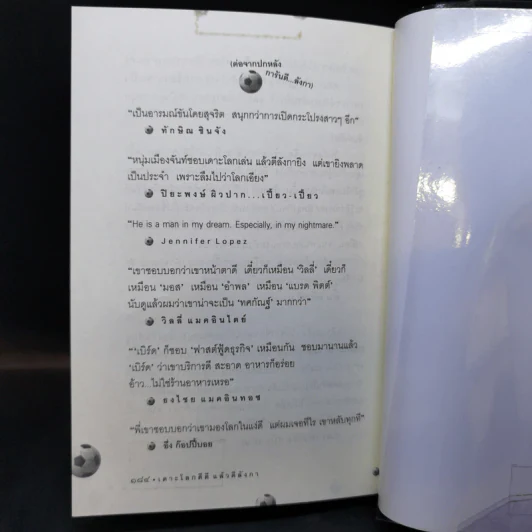 (ต่อจากปกหลัง
การันตี...ลังกา)
“เป็นอารมณ์ขันโดยสุจริต สนุกกว่าการเปิดกระโปรงสาวๆ อีก”
ทักษิณ ชินจัง
“หนุ่มเมืองจันท์ชอบเดาะโลกเล่น แล้วตีลังกายิง แต่เขายิงพลาด
เป็นประจำ เพราะลืมไปว่าโลกเอียง”
ปิยะพงษ์ ผิวปาก...เปี๊ยว-เปี๊ยว
“He is a man in my dream. Especially, in my nightmare.”
Jennifer Lopez
“เขาชอบบอกว่าเขาหน้าตาดี เดี๋ยวก็เหมือน ‘วิลลี่’ เดี๋ยวก็
เหมือน ‘มอส’ เหมือน ‘อำพล’ เหมือน ‘แบรด พิตต์’
นับดูแล้วผมว่าเขาน่าจะเป็น ‘ทศกัณฐ์’ มากกว่า”
วิลลี่ แมคอินไตย์
“‘เบิร์ด’ ก็ชอบ ‘ฟาสต์ฟู้ดธุรกิจ’ เหมือนกัน ชอบมานานแล้ว
‘เบิร์ด’ ว่าเขาบริการดี สะอาด อาหารก็อร่อย
อ้าว..ไม่ใช่ร้านอาหารเหรอ”
ธงไชย แมคอินทอช
“พี่เขาชอบบอกว่าเขามองโลกในแง่ดี แต่ผมเจอทีไร เขาหลับทุกที”
อึ่ง ก๊อปปี้บอย
๑๘๔ • เดาะโลกดีดี แล้วตีลังกา